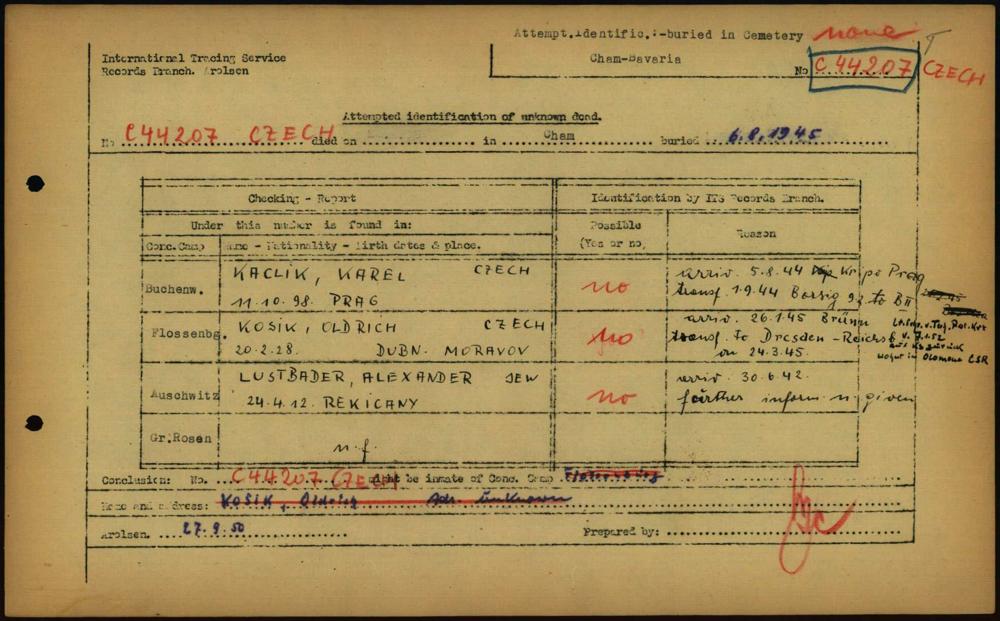 Attempt.Identific.:-buried in Cemetery none
Cham-Bavaria
No C 44207 CZECH
International Tracing Service
Records Branch. Arolsen
Attempted identification of unknown dead.
No C44207 CZECH died on in Cham buried 6.8.1945
Checking - Report
Identification by ITS Records Branch.
Under this number is found in:
Possible
(Yes or no)
Reason
Conc.Camp Name - Nationality - Birth dates & place.
Buchenw.
KACLIK, KAREL CZECH
11.10.98. PRAG
no
arriv. 5.8.44 Kripo Prag
transf. 1.9.44 Bassig 92 to BII
Flossenbg.
KOSIK, OLDRICH CZECH
20.2.28. DUBN. MORAVOV
no
arriv. 26.1.45 Brünn
transf. to Dresden - Reichsb
on 24.3.45.
v. 7.1.52
aus Kz zurück
wohnt in Olomouc CSR
Auschwitz
LUSTBADER, ALEXANDER JEW
24.4.12. REKICANY
no
arriv. 30.6.42.
further inform. n. given
Gr.Rosen
n.f.
Conclusion: No. C44207 CZECH might be inmate of Conc. Camp Flossenbürg
Name and address: KOSIK, Oldrich Adr. unknown
Arolsen. 27.9.50 Prepared by: